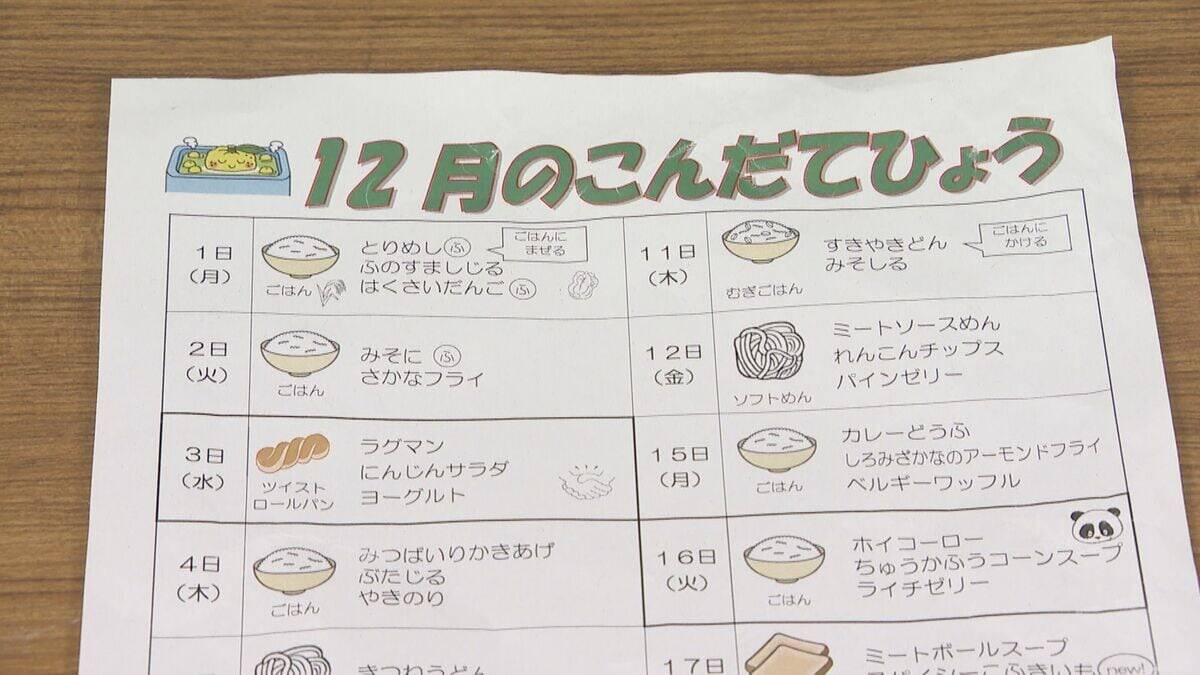 12月のこんだてひょう
1日
(月)
ごはん
とりめし ふ
ふのすましじる
はくさいだんご ふ
ごはんに
まぜる
2日
(火)
ごはん
みそに ふ
さかなフライ
3日
(水)
ツイスト
ロールパン
ラグマン
にんじんサラダ
ヨーグルト
4日
(木)
ごはん
みつばいりかきあげ
ぶたじる
やきのり
きつねうどん
11日
(木)
むぎごはん
すきやきどん
みそしる
ごはんに
かける
12日
(金)
ソフトめん
ミートソースめん
れんこんチップス
パインゼリー
15日
(月)
ごはん
カレーどうふ
しろみざかなのアーモンドフライ
ベルギーワッフル
16日
(火)
ごはん
ホイコーロー
ちゅうかふうコーンスープ
ライチゼリー
17日
ミートボールスープ
スパイシーこふきいも new!